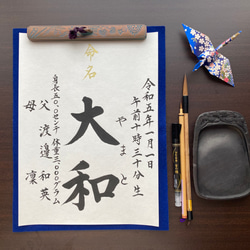 命名
令和五年一月一日
午前十時三十分生
大和
やまと
身長五〇、〇センチ 体重三、〇〇〇グラム
父 渡邉和英
母 凜